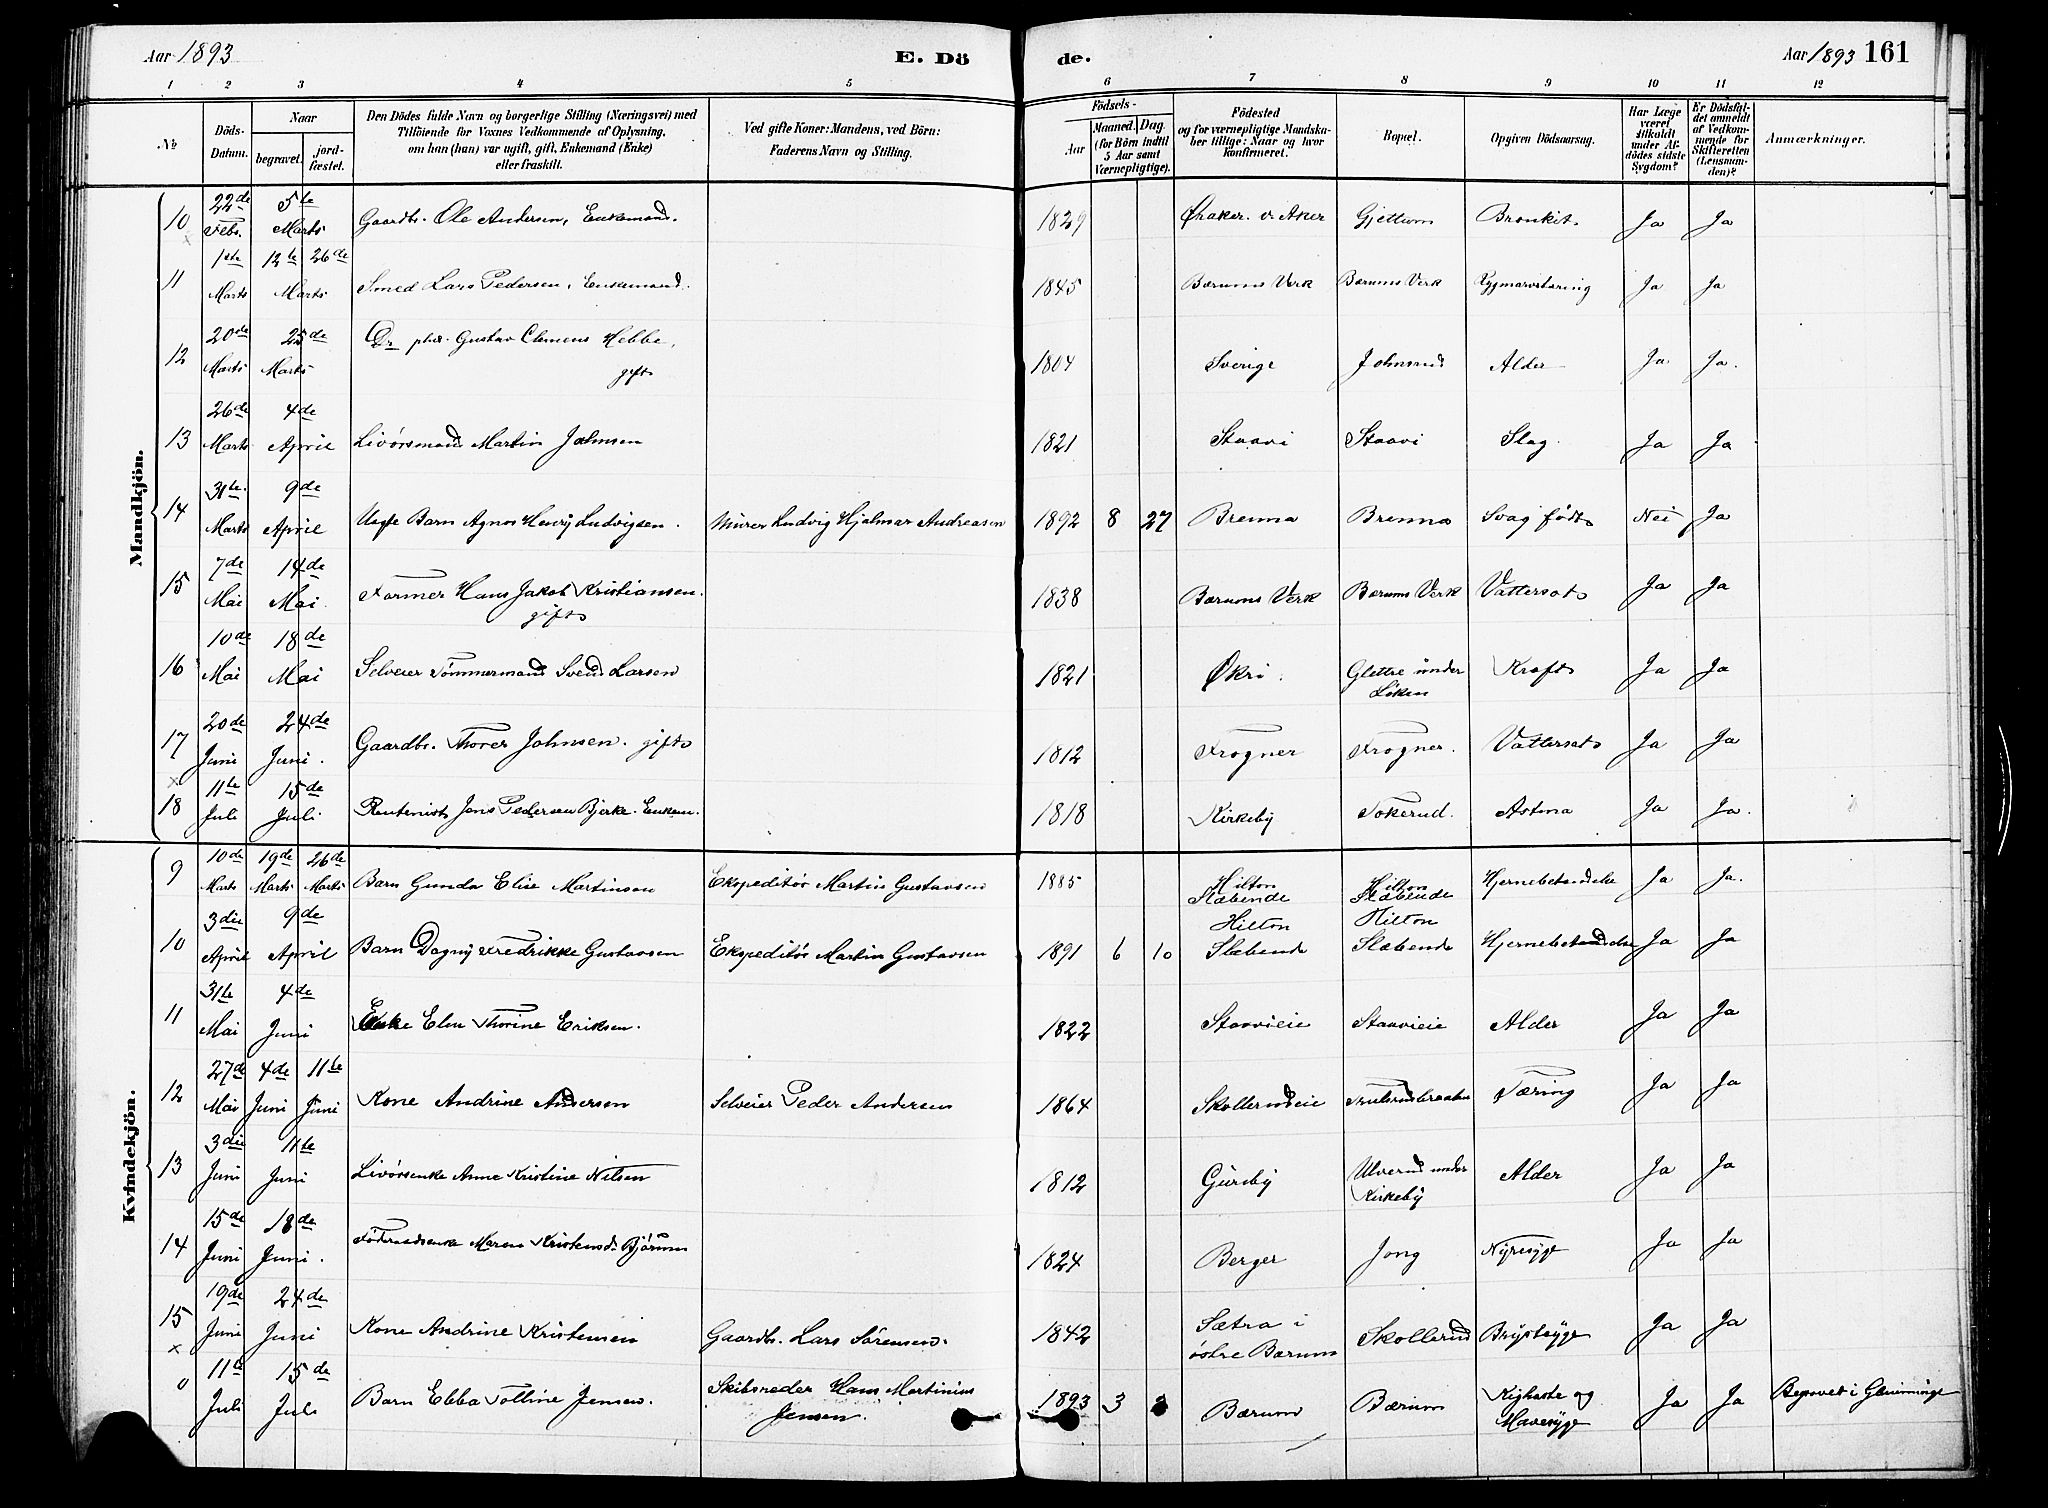 Aar 1893
E. Dö
de.
Aar 1893 161
1 2 3 4 5 6 7 8 9 10 11 12
№
Döds-Datum.
Naar
begravet.
jord-fæstet.
Den Dödes fulde Navn og borgerlige Stilling (Næringsvei) med
Tilföiende for Voxnes Vedkommende af Oplysning,
om han (hun) var ugift, gift, Enkemand (Enke)
eller fraskilt.
Ved gifte Koner: Mandens, ved Börn:
Faderens Navn og Stilling.
Födsels-
Aar
Maaned.
Dag.
(for Börn indtil
5 Aar samt
Værnepligtige).
Födested
og for værnepligtige Mandska-
ber tillige: Naar og hvor
konfirmeret.
Bopæl.
Opgiven Dödsaarsag.
Har Læge
været
tilkaldt
under Af-
dødes sidste
Sygdom?
Er Dödsfal-
det anmeldt
af Vedkom-
mende for
Skifteretten
(Lensman-
den)?
Anmærkninger.
Mandkjön.
10 22de Febr. 5te Marts Gaardbr. Ole Andersen, Enkemand. 1829 Øraker v. Aker Gjettum Bronkit. Ja Ja
11 1ste Marts 12te Marts 26de Smed Lars Pedersen, Enkemand. 1845 Bærums Verk Bærums Verk Rygmarvstæring Ja Ja
12 20de Marts 25de Marts Dr phil. Gustav Clemens Hebbe,
gift 1804 Sverige Johnsrud Alder Ja Ja.
13 26de Marts 4de April Livörsmand Martin Johnsen 1821 Staavi Staavi Slag. Ja Ja
14 31te Marts 9de April Uegte Barn Agnes Henry Ludvigsen. Murer Ludvig Hjalmar Andreasen 1892 8 27 Brenna Brenna Svag födt Nei Ja
15 7de Mai 14de Mai. Former Hans Jakob Kristiansen.
gift 1838 Bærums Verk Bærums Verk Vattersot Ja Ja
16 10de Mai 18de Mai Selveier Tömmermand Svend Larsen 1821 Økri. Glettre under
Löken Kræft Ja Ja
17 20de Juni 24de Juni. Gaardbr. Thorer Johnsen. gift 1812 Frogner Frogner. Vattersot Ja Ja
18 11te Juli 15de Juli Rentenist Jens Pedersen Bjerke. Enkem. 1818 Kirkeby Tokerud. Astma Ja Ja.
Kvindekjön.
9 10de Marts 19de Marts 26de Marts Barn Gunda Elise Martinsen Ekspeditör Martin Gustavsen 1885 Hilton
Slæbende Hilton
Slæbende Hjernebetændelse Ja Ja.
10 3die April 9de April Barn Dagny Fredrikke Gustavsen Ekspeditör Martin Gustavsen 1891 6 10 Hilton
Slæbende Hilton
Slæbende Hjernebetændelse Ja Ja
11 31te Mai 4de Juni Enke Elen Thorine Eriksen. 1822 Staavieie Staavieie Alder Ja Ja
12 27de Mai 4de Juni 11te Juni Kone Andrine Andersen Selveier Peder Andersen 1864 Skollerudeie Tæring Ja Ja
13 3die Juni 11te Juni Livörsenke Anne Kristine Nilsen 1812 Gurby Ulverud under
Kirkeby Alder Ja Ja
14 15de Juni 18de Juni. Föderaadsenke Maren Kristensd. Bjørum 1824 Berger Jong Nyresyge Ja Ja
15 19de Juni 24de Juni Kone Andrine Kristensen Gaardbr. Lars Sörensen. 1842 Sætra i
östre Bærum Skollerud Brystsyge Ja Ja
0 11te Juli 15de Juli Barn Ebba Tolline Jensen. Skibsreder Hans Martinius
Jensen. 1893 3 Bærum Bærum Kighoste og
Mavesyge Ja Ja Begravet i